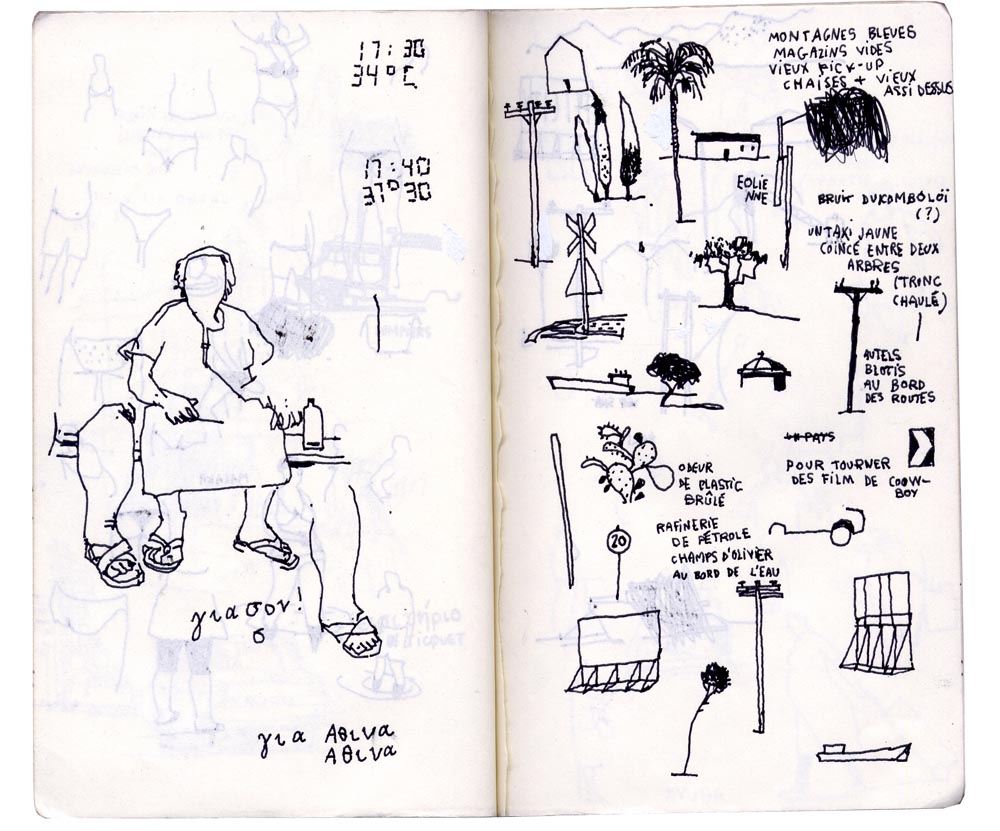 17:30
34°C
17:40
37°30
για σον!
σ
για Αθινα
Αθινα
MONTAGNES BLEUES
MAGAZINS VIDES
VIEUX PICK-UP
CHAISES + VIEUX
ASSI DESSUS
EOLIE
NNE
BRUIT DU KOMBOLOÏ
(?)
UN TAXI JAUNE
COINCÉ ENTRE DEUX
ARBRES
(TRONC
CHAULÉ)
AUTELS
BLOTIS
AU BORD
DES ROUTES
PAYS
POUR TOURNER
DES FILM DE COOW-
BOY
ODEUR
DE PLASTIC
BRÛLÉ
20
RAFINERIE
DE PÉTROLE
CHAMPS D'OLIVIER
AU BORD DE L'EAU